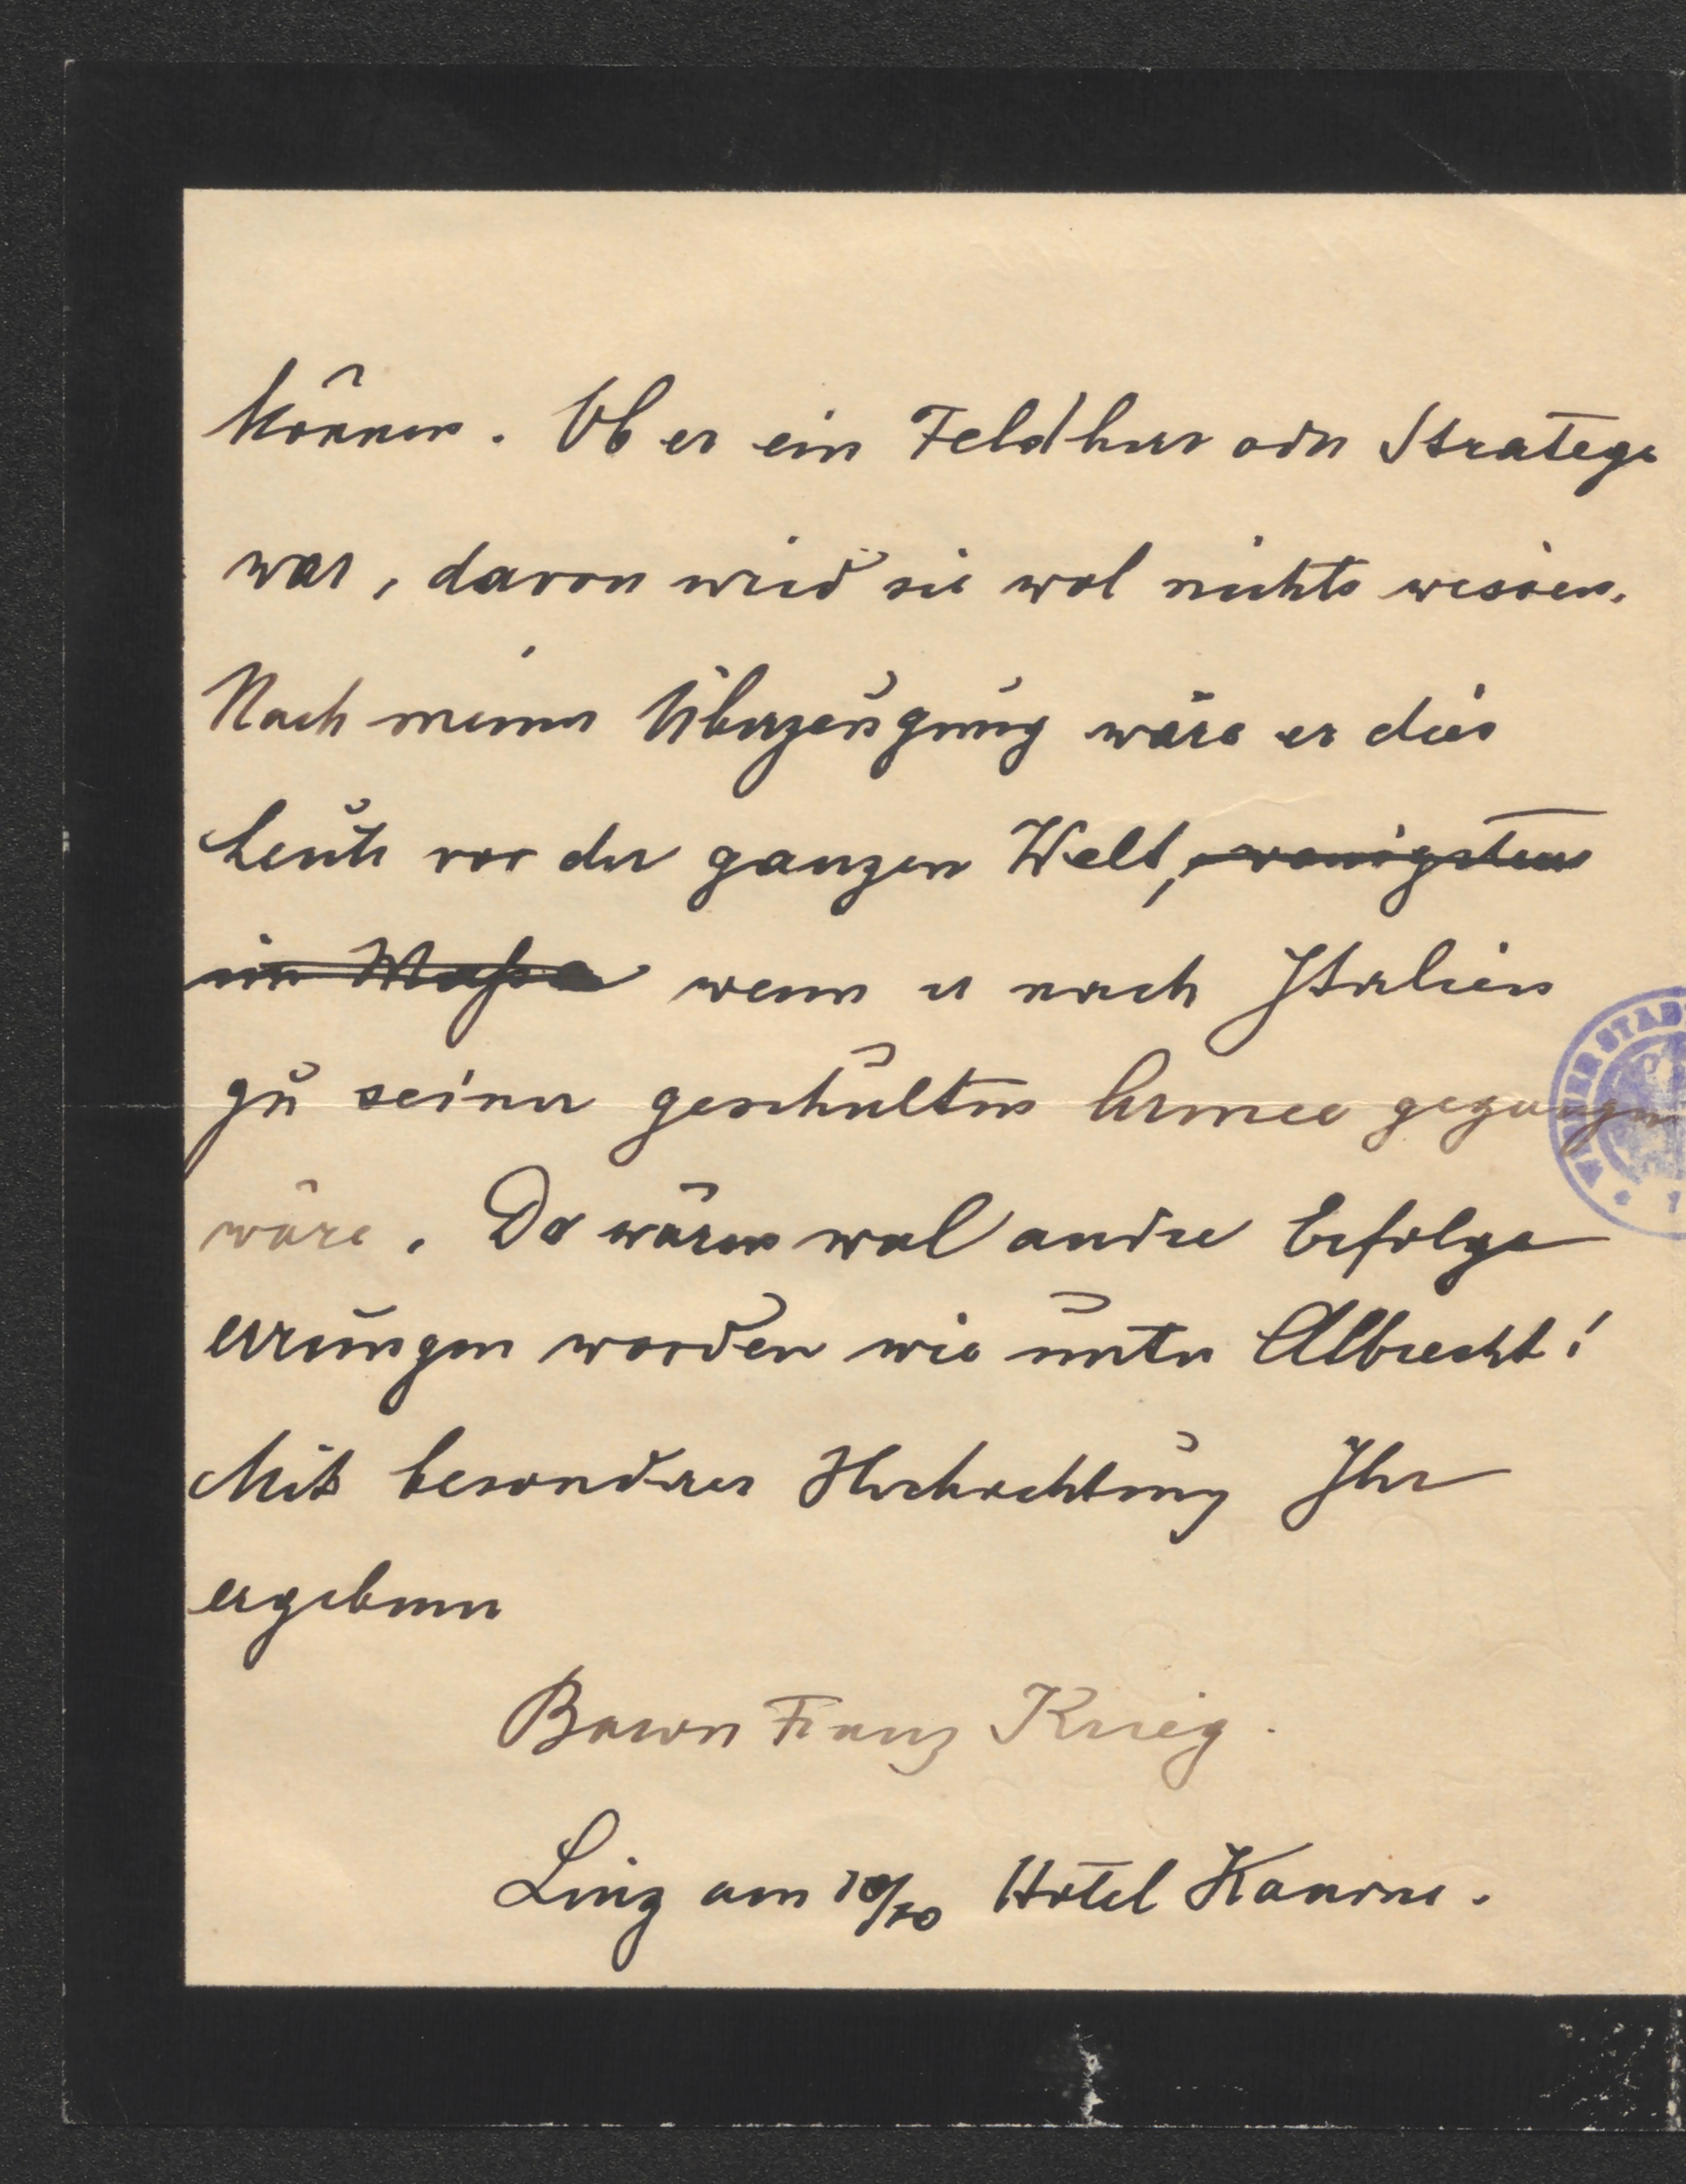 können. Ob er ein Feldherr oder Stratege
war, davon wird sie wol nichts wissen.
Nach meiner Überzeugung wäre er dies
heute vor der ganzen Welt, wenigstens
im wenn er nach Italien
zu seiner geschulten Armee gegangen
wäre. Da wären wol andre Erfolge
errungen worden wie unter Albrecht!
Mit besondrer Hochachtung Ihr
ergebener
Baron Franz Krieg.
Linz am 10/10 Hotel Kanone.
WIENER STAD